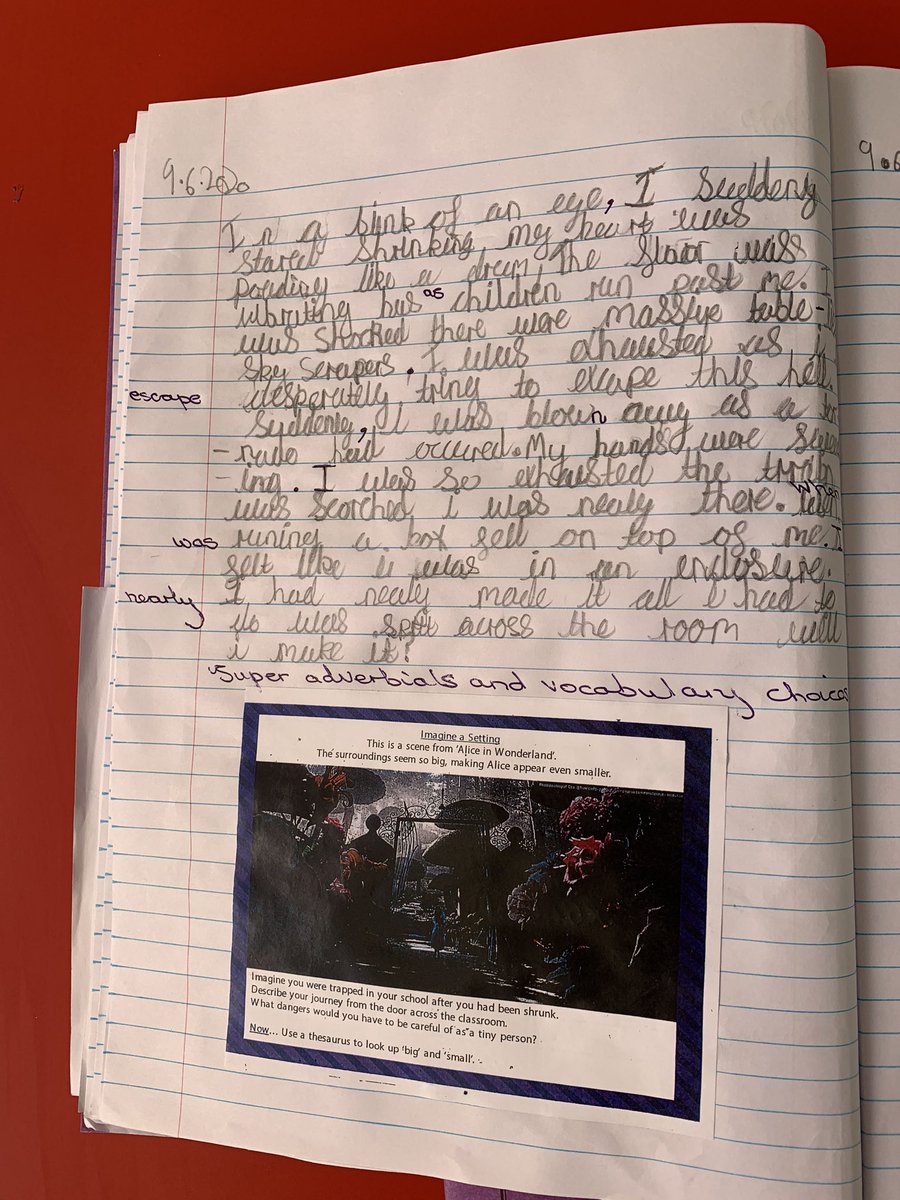 9.6.2020
In a blink of an eye, I suddenly
stared shrinking, my heart was
pouding like a drem, the floor was
vibrating has as children run past me. I
was shocked there were massive table -
sky scrapers. I was exhausted as I
escape desperately tring to excape this hell.
Suddenly, I was blown away as a tor
-nado had occured. My hands were
-ing. I was so exhausted the
was scorched i was nealy there. When
was runing a box fell on top of me. I
felt like i was in an enclosure.
nearly I had nealy made it all i had to
do was split across the room will
i make it?
Super adverbials and vocabulary choices
Imagine a Setting
This is a scene from 'Alice in Wonderland'.
The surroundings seem so big, making Alice appear even smaller.
Imagine you were trapped in your school after you had been shrunk.
Describe your journey from the door across the classroom.
What dangers would you have to be careful of as a tiny person?
Now... Use a thesaurus to look up 'big' and 'small'.
9.6